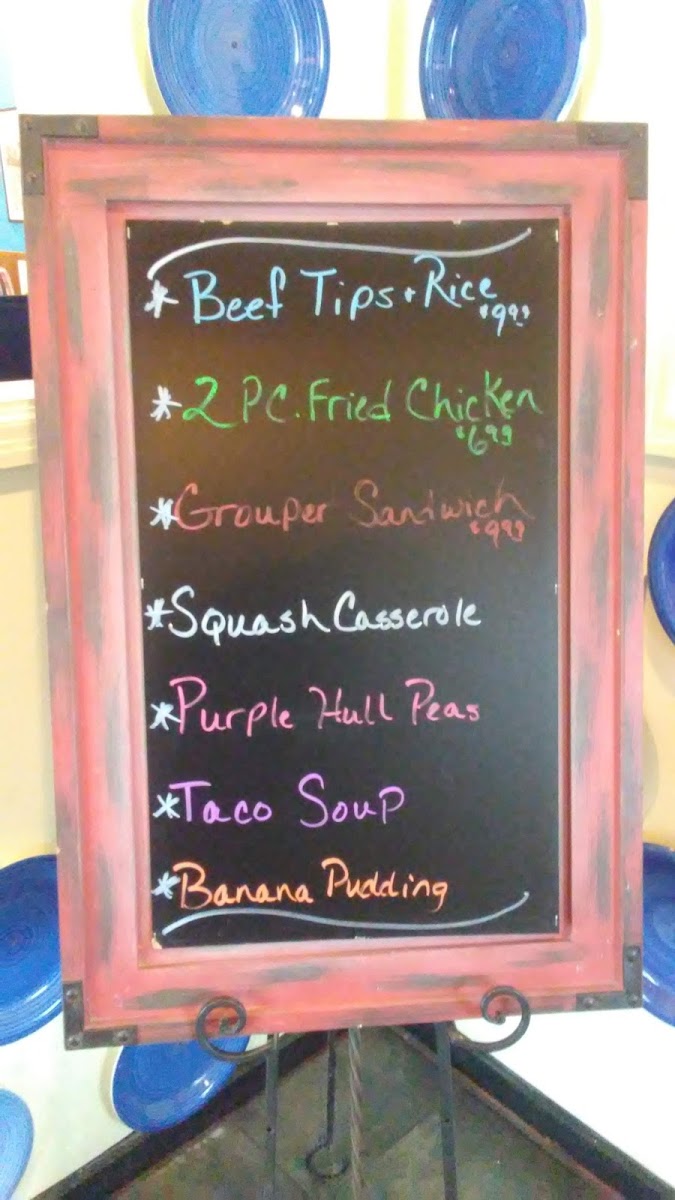 * Beef Tips + Rice
$9.99
* 2 PC. Fried Chicken
$6.99
* Grouper Sandwich
$9.99
* Squash Casserole
* Purple Hull Peas
* Taco Soup
* Banana Pudding